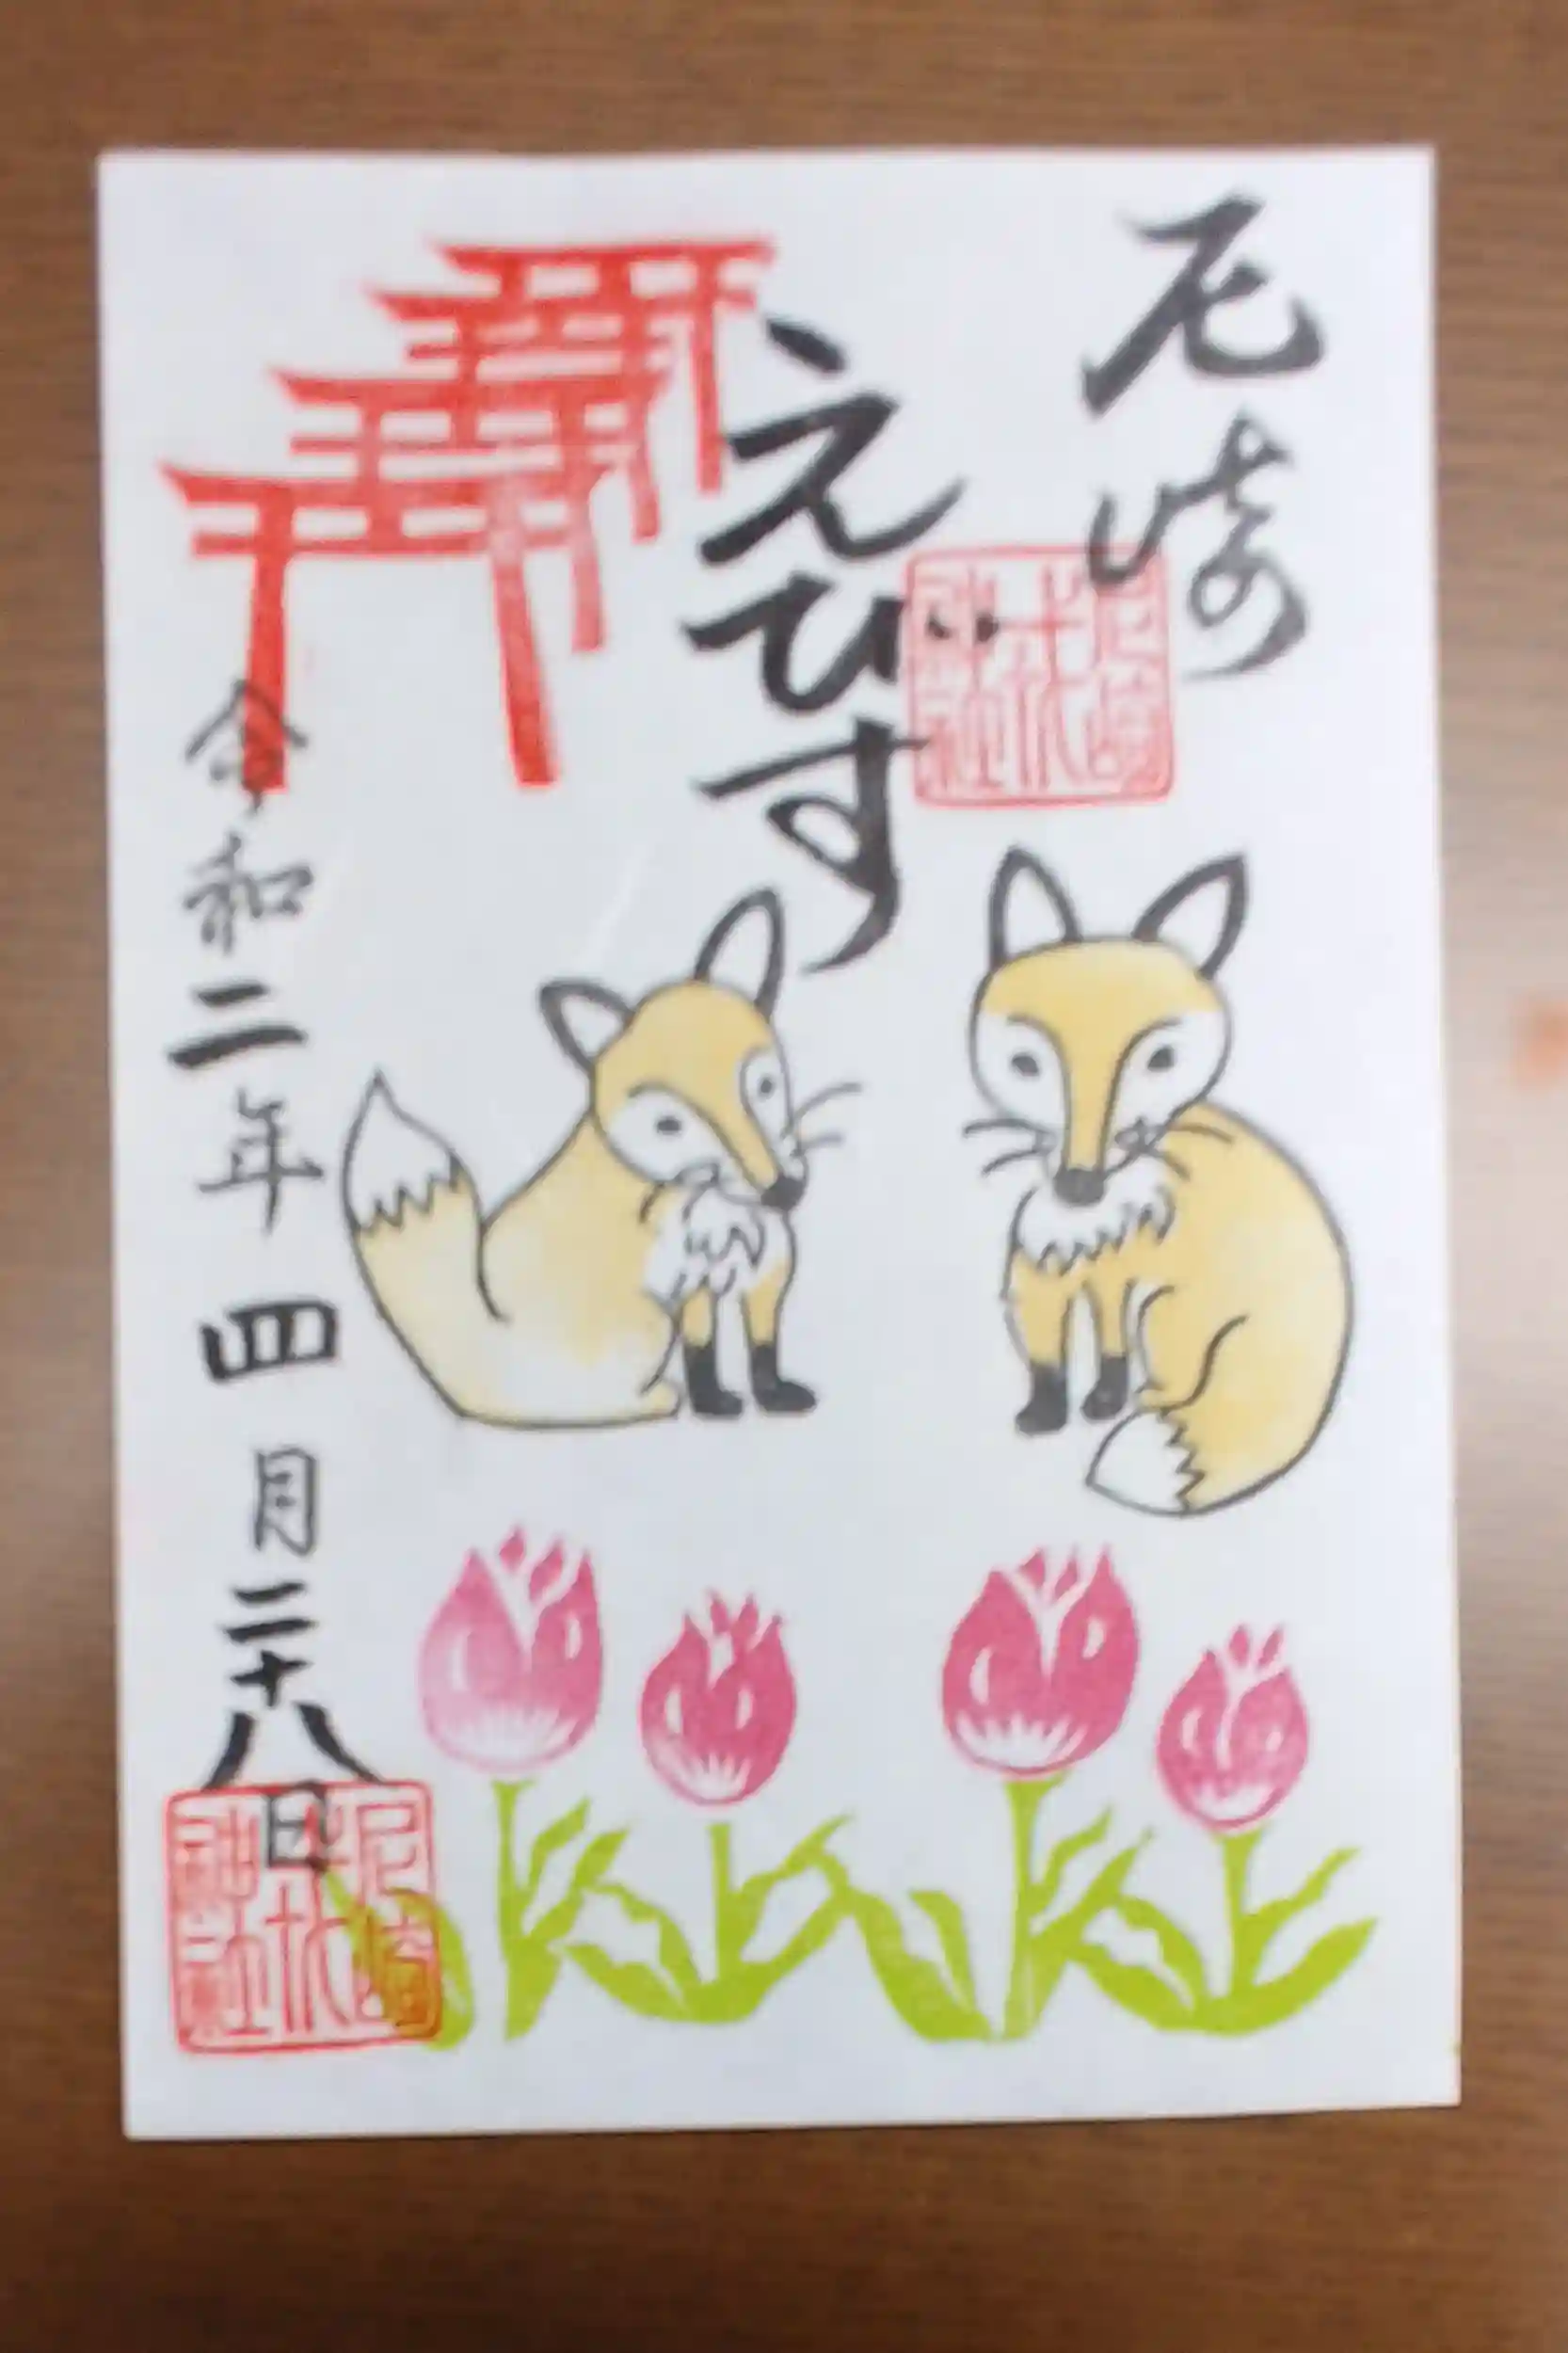 尼崎
えびす
令和二年四月二十八日
尼崎
神社
尼崎
神社